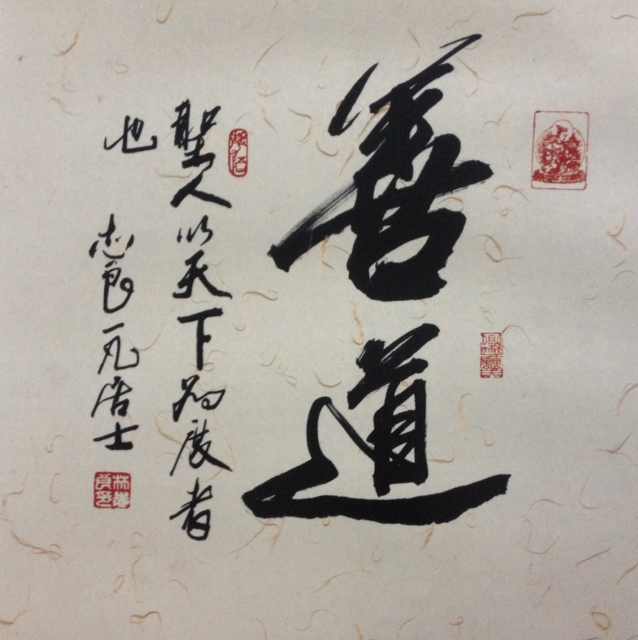 善道
聖人以天下為度者
也
志良一凡居士